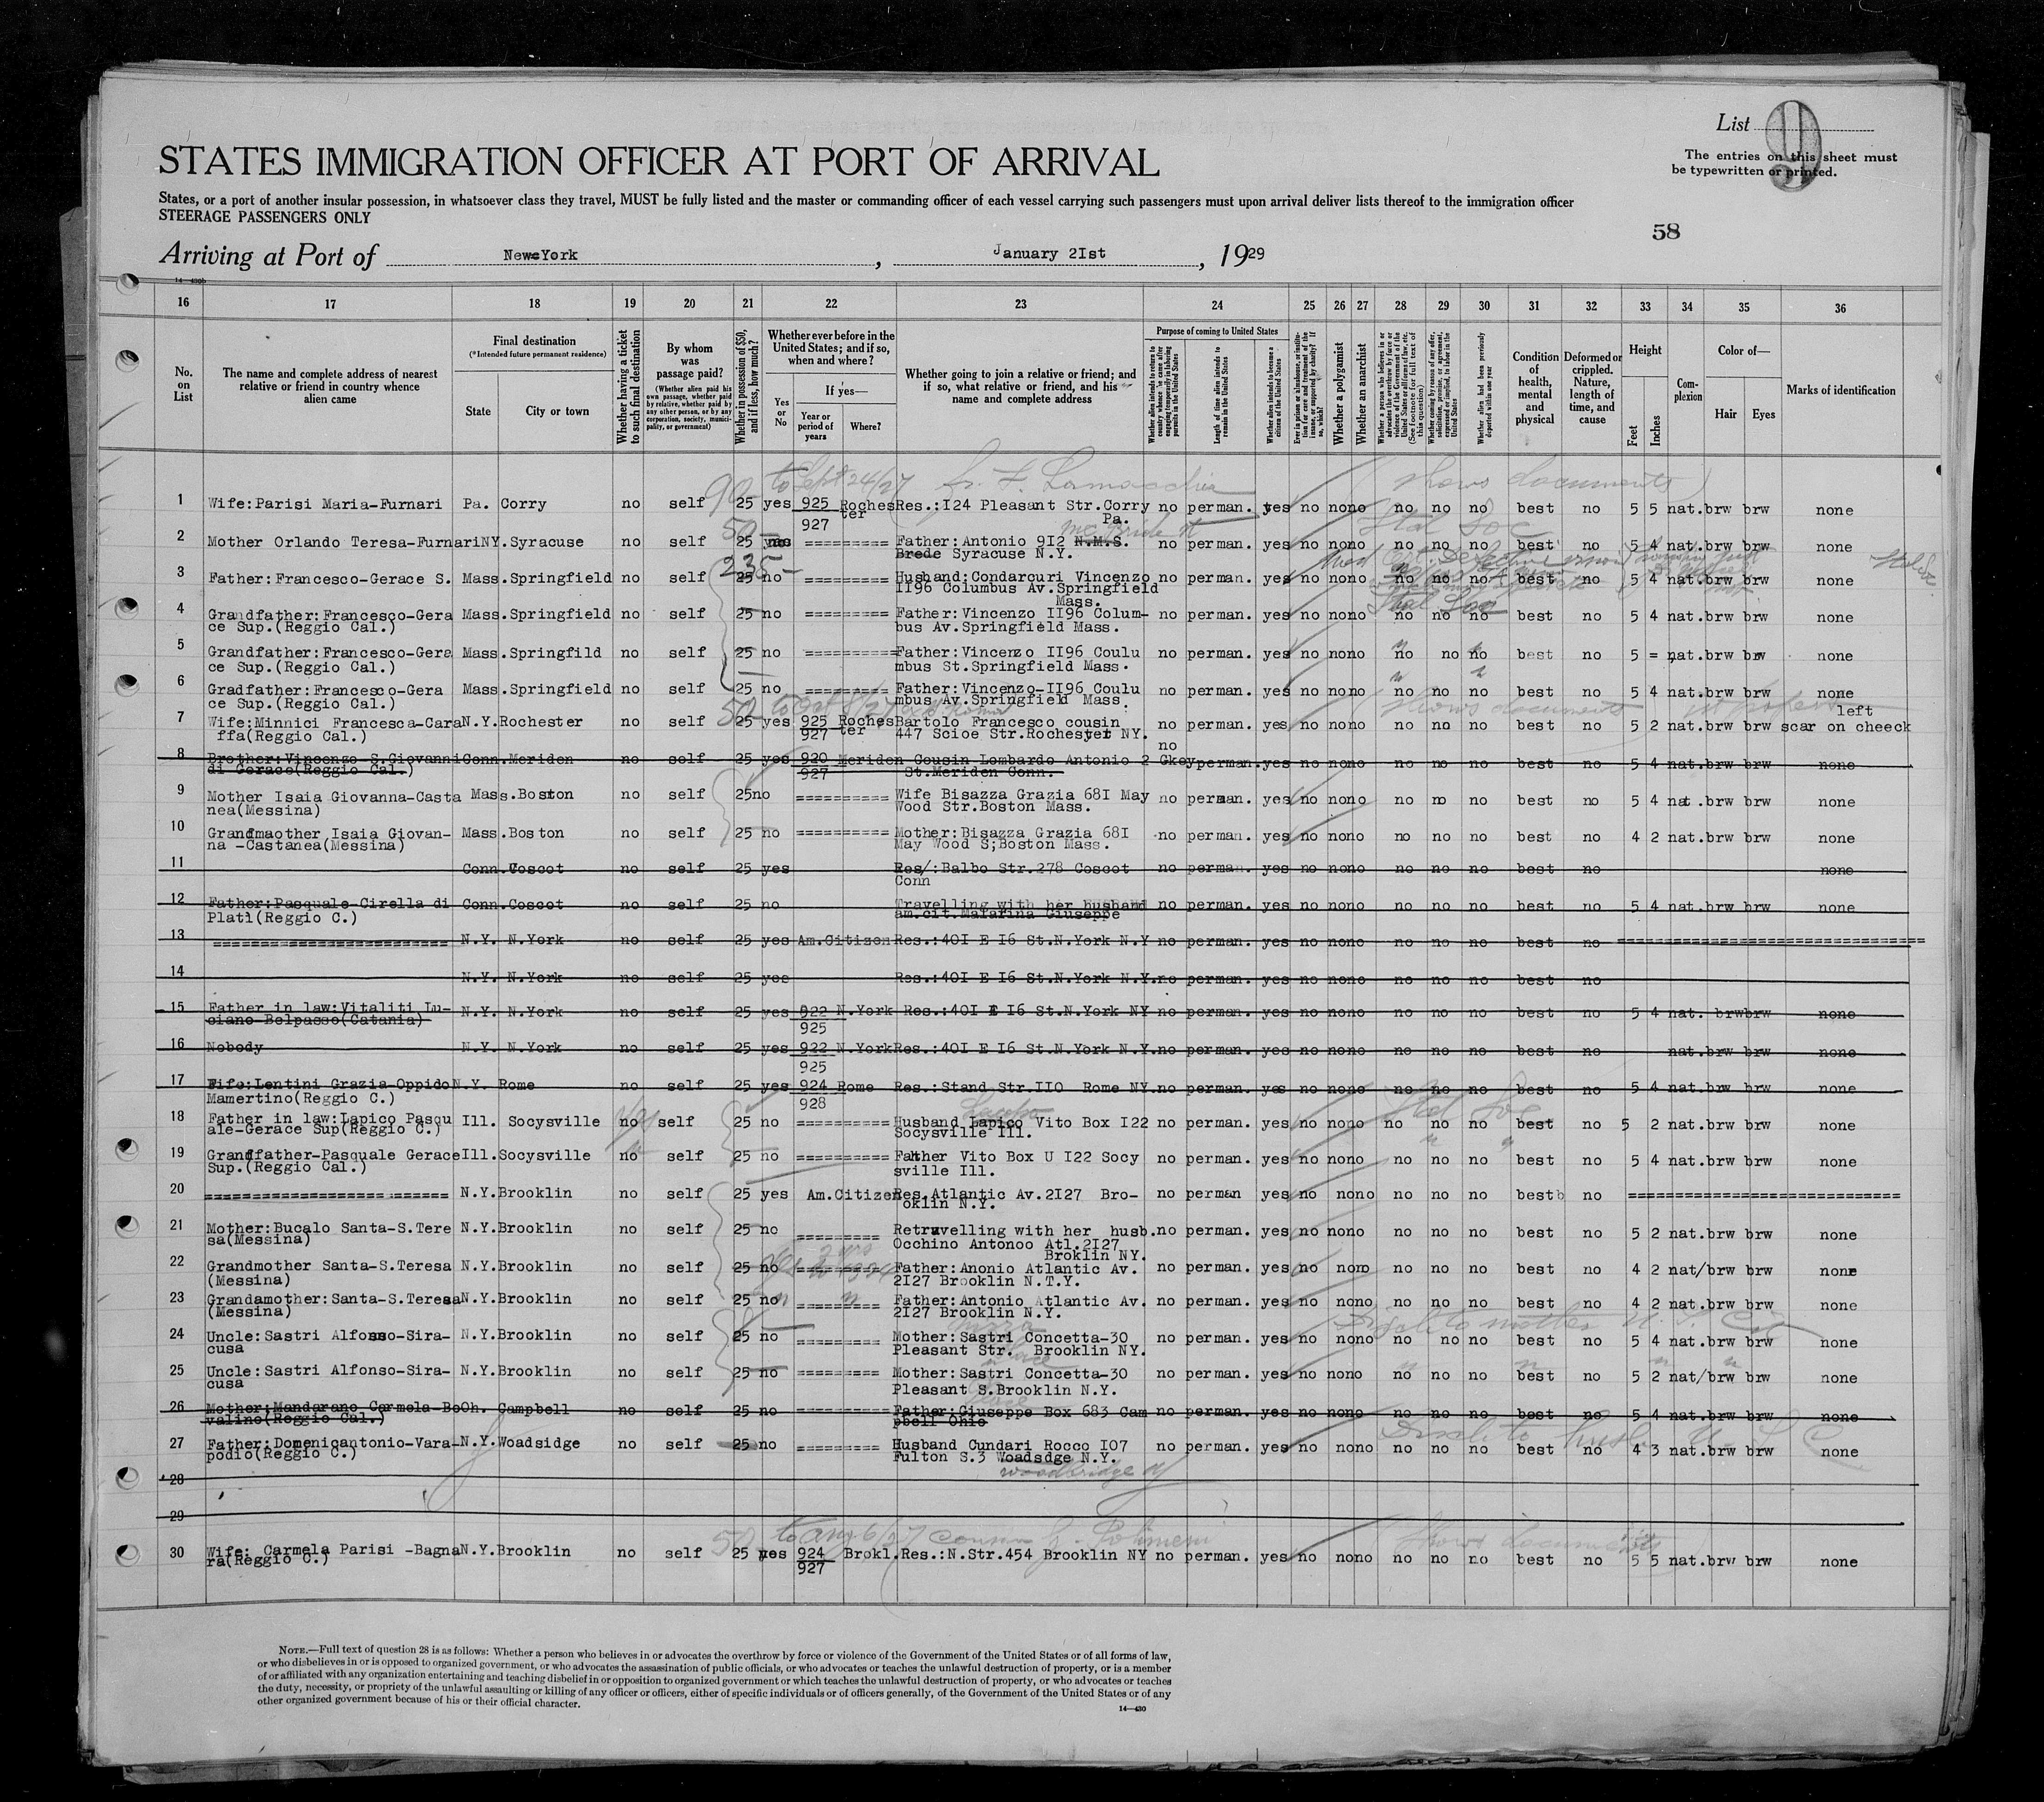 List 9
The entries on this sheet must
be typewritten or printed.
STATES IMMIGRATION OFFICER AT PORT OF ARRIVAL
States, or a port of another insular possession, in whatsoever class they travel, MUST be fully listed and the master or commanding officer of each vessel carrying such passengers must upon arrival deliver lists thereof to the immigration officer
STEERAGE PASSENGERS ONLY
58
Arriving at Port of New=York, January 2Ist, 1929
16 17 18 19 20 21 22 23 24 25 26 27 28 29 30 31 32 33 34 35 36
No. on List
The name and complete address of nearest relative or friend in country whence alien came
Final destination
(*Intended future permanent residence)
State
City or town
Whether having a ticket to such final destination
By whom was passage paid?
(Whether alien paid his own passage, whether paid by relative, whether paid by any other person, or by any corporation, society, municipality, or government)
Whether in possession of $50, and if less, how much?
Whether ever before in the United States; and if so, when and where?
Yes or No
If yes—
Year or period of years
Where?
Whether going to join a relative or friend; and if so, what relative or friend, and his name and complete address
Purpose of coming to United States
Length of time alien intends to remain in the United States
Whether alien intends to become a citizen of the United States
Whether a polygamist
Whether an anarchist
Condition of health, mental and physical
Deformed or crippled. Nature, length of time, and cause
Height
Feet
Inches
Complexion
Color of—
Hair
Eyes
Marks of identification
90- to Sept 24/27 (shows documents)
1 Wife:Parisi Maria-Furnari Pa. Corry no self 25 yes 925 Roches Res.:I24 Pleasant Str.Corry no perman. yes no nono no no no best no 5 5 nat.brw brw none
927 ter Pa.
2 Mother Orlando Teresa-Furnari NY.Syracuse no self 25 ========== Father:Antonio 9I2 N.M.S. no perman. yes no nono no no no best no 5 4 nat.brw brw none
Brede Syracuse N.Y.
235-
3 Father:Francesco-Gerace S. Mass.Springfield no self 25 no ========== Husband:Condarcuri Vincenzo no perman. yes no nono no no no best no 5 4 nat.brw brw none
II96 Columbus Av.Springfield
Mass.
4 Grandfather:Francesco-Gera Mass.Springfield no self 25 no ========== Father:Vincenzo II96 Colum- no perman. yes no nono no no no best no 5 4 nat.brw brw none
ce Sup.(Reggio Cal.) bus Av.Springfield Mass.
5 Grandfather:Francesco-Gera Mass.Springfild no self 25 no ========== Father:Vincenzo II96 Coulu no perman. yes no nono no no no best no 5 = nat.brw brw none
ce Sup.(Reggio Cal.) mbus St.Springfield Mass.
6 Gradfather:Francesco-Gera Mass.Springfield no self 25 no ========== Father:Vincenzo-II96 Coulu no perman. yes no nono no no no best no 5 4 nat.brw brw none
ce Sup.(Reggio Cal.) mbus Av.Springfield Mass.
50 (shows documents left
7 Wife:Minnici Francesca-Cara N.Y.Rochester no self 25 yes 925 Roches Bartolo Francesco cousin no perman. yes no nono no no no best no 5 2 nat.brw brw scar on cheeck
ffa(Reggio Cal.) 927 ter 447 Scioe Str.Rochester NY.
no
8 Brother:Vincenzo S.Giovanni Conn.Meriden no self 25 yes 920 Meriden Cousin Lombardo Antonio 2 Gkey perman.yes no nono no no no best no 5 4 nat.brw brw none
di Gerace(Reggio Cal.) 927 St.Meriden Conn.
9 Mother Isaia Giovanna-Casta Mass.Boston no self 25no ========== Wife Bisazza Grazia 68I May no perman. yes no nono no no no best no 5 4 nat.brw brw none
nea(Messina) Wood Str.Boston Mass.
10 Grandmaother Isaia Giovan- Mass.Boston no self 25 no ========== Mother:Bisazza Grazia 68I no perman. yes no nono no no no best no 4 2 nat.brw brw none
na -Castanea(Messina) May Wood S;Boston Mass.
11 Conn.Coscot no self 25 yes Res/:Balbo Str.278 Coscot no perman. yes no nono no no no best no none
Conn
12 Father:Pasquale-Cirella di Conn.Coscot no self 25 no Travelling with her husband no perman. yes no nono no no no best no 5 4 nat.brw brw none
Plati(Reggio C.) am.cit.Mafarina Giuseppe
13 ======================== N.Y. N.York no self 25 yes Am.Citizen Res.:40I E I6 St.N.York N.Y no perman. yes no nono no no no best no ==============================
14 N.Y. N.York no self 25 yes Res.:40I E I6 St.N.York N.Y.no perman. yes no nono no no no best no
15 Father in law:Vitaliti Lu- N.Y. N.York no self 25 yes 922 N.York Res.:40I E I6 St.N.York NY no perman. yes no nono no no no best no 5 4 nat. brwbrw none
ciano-Belpasso(Catania) 925
16 Nobody N.Y. N.York no self 25 yes 922 N.York Res.:40I E I6 St.N.York N.Y.no perman. yes no nono no no no best no nat.brw brw none
925
17 Wife:Lentini Grazia-Oppido N.Y. Rome no self 25 yes 924 Rome Res.:Stand Str.II0 Rome NY.no perman. yes no nono no no no best no 5 4 nat.brw brw none
Mamertino(Reggio C.) 928
18 Father in law:Lapico Pasqu Ill. Socysville no self 25 no ========== Husband Lapico Vito Box I22 no perman. yes no nono no no no best no 5 2 nat.brw brw none
ale-Gerace Sup(Reggio C.) Socysville Ill.
19 Grandfather-Pasquale Gerace Ill.Socysville no self 25 no ========== Father Vito Box U I22 Socy no perman. yes no nono no no no best no 5 4 nat.brw brw none
Sup.(Reggio Cal.) sville Ill.
20 ======================== N.Y.Brooklin no self 25 yes Am.Citizen Res.Atlantic Av.2I27 Bro- no perman yes no nono no no no bestb no ==============================
oklin N.Y.
21 Mother:Bucalo Santa-S.Tere N.Y.Brooklin no self 25 no ========= Retravelling with her husb.no perman. yes no nono no no no best no 5 2 nat.brw brw none
sa(Messina) Occhino Antonoo Atl.2I27
Broklin NY.
22 Grandmother Santa-S.Teresa N.Y.Brooklin no self 25 no ========= Father:Anonio Atlantic Av. no perman. yes no nono no no no best no 4 2 nat/brw brw none
(Messina) 2I27 Brooklin N.T.Y.
23 Grandamother:Santa-S.Teresa N.Y.Brooklin no self 25 no ========= Father:Antonio Atlantic Av. no perman. yes no nono no no no best no 4 2 nat.brw brw none
(Messina) 2I27 Brooklin N.Y.
24 Uncle:Sastri Alfonso-Sira- N.Y.Brooklin no self 25 no ========= Mother:Sastri Concetta-30 no perman. yes no nono no no no best no 5 4 nat.brw brw none
cusa Pleasant Str. Brooklin NY.
25 Uncle:Sastri Alfonso-Sira- N.Y.Brooklin no self 25 no ========= Mother:Sastri Concetta-30 no perman. yes no nono no no no best no 5 2 nat/brw brw none
cusa Pleasant S.Brooklin N.Y.
26 Mother:Mandarano Carmela-Bo Oh. Campbell no self 25 no ========= Father:Giuseppe Box 683 Cam no perman. yes no nono no no no best no 5 4 nat.brw brw none
valino(Reggio Cal.) pbell Ohio
27 Father:Domenicantonio-Vara- N.Y.Woadsidge no self 25 no ========= Husband Cundari Rocco I07 no perman. yes no nono no no no best no 4 3 nat.brw brw none
podio(Reggio C.) Fulton S.3 Woadsdge N.Y.
woodbridge nj
28
29
50 to Aug 6/27 (shows documents)
30 Wife: Carmela Parisi -Bagna N.Y.Brooklin no self 25 yes 924 Brokl.Res.:N.Str.454 Brooklin NY no perman. yes no nono no no no best no 5 5 nat.brw brw none
ra(Reggio C.) 927
NOTE.—Full text of question 28 is as follows: Whether a person who believes in or advocates the overthrow by force or violence of the Government of the United States or of all forms of law,
or who disbelieves in or is opposed to organized government, or who advocates the assassination of public officials, or who advocates or teaches the unlawful destruction of property, or is a member
of or affiliated with any organization entertaining and teaching disbelief in or opposition to organized government or which teaches the unlawful destruction of property, or who advocates or teaches
the duty, necessity, or propriety of the unlawful assaulting or killing of any officer or officers, either of specific individuals or of officers generally, of the Government of the United States or of any
other organized government because of his or their official character.
14—430